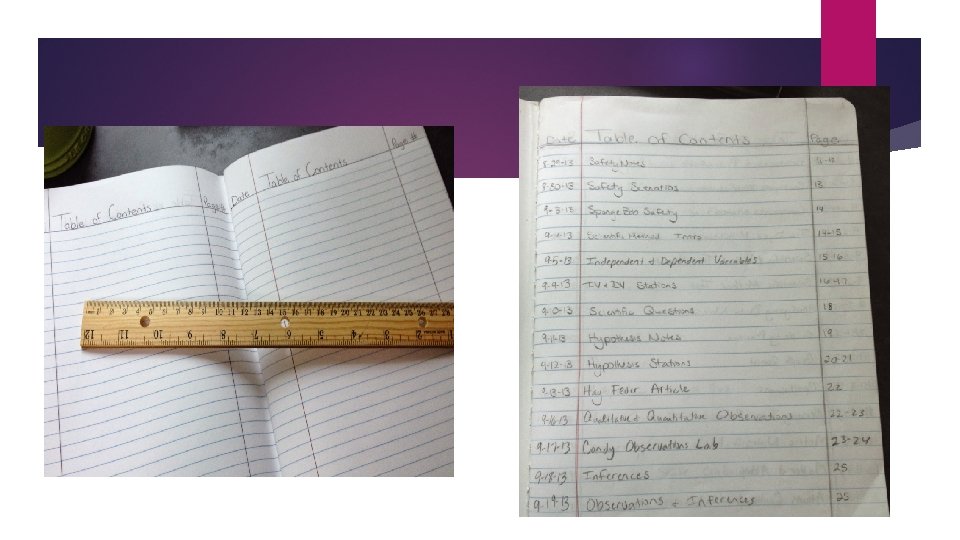 Table of Contents Page # Date Table of Contents Page #
12 11 10 9 8 7 6 5 4 3 2 1
Date Table of Contents Page
8-29-13 Safety Notes 11-12
8-30-13 Safety Scenarios 13
9-3-13 Sponge Bob Safety 14
9-4-13 Scientific Method Intro 14-15
9-5-13 Independent & Dependent Variables 15-16
9-9-13 IV & DV Stations 16-17
Scientific Questions 18
9-11-13 Hypothesis Notes 19
9-12-13 Hypothesis Stations 20-21
9-13-13 Hay Fever Article 22
9-16-13 Qualitative & Quantitative Observations 22-23
9-17-13 Candy Observations Lab 23-24
9-18-13 Inferences 25
9-19-13 Observations & Inferences 25